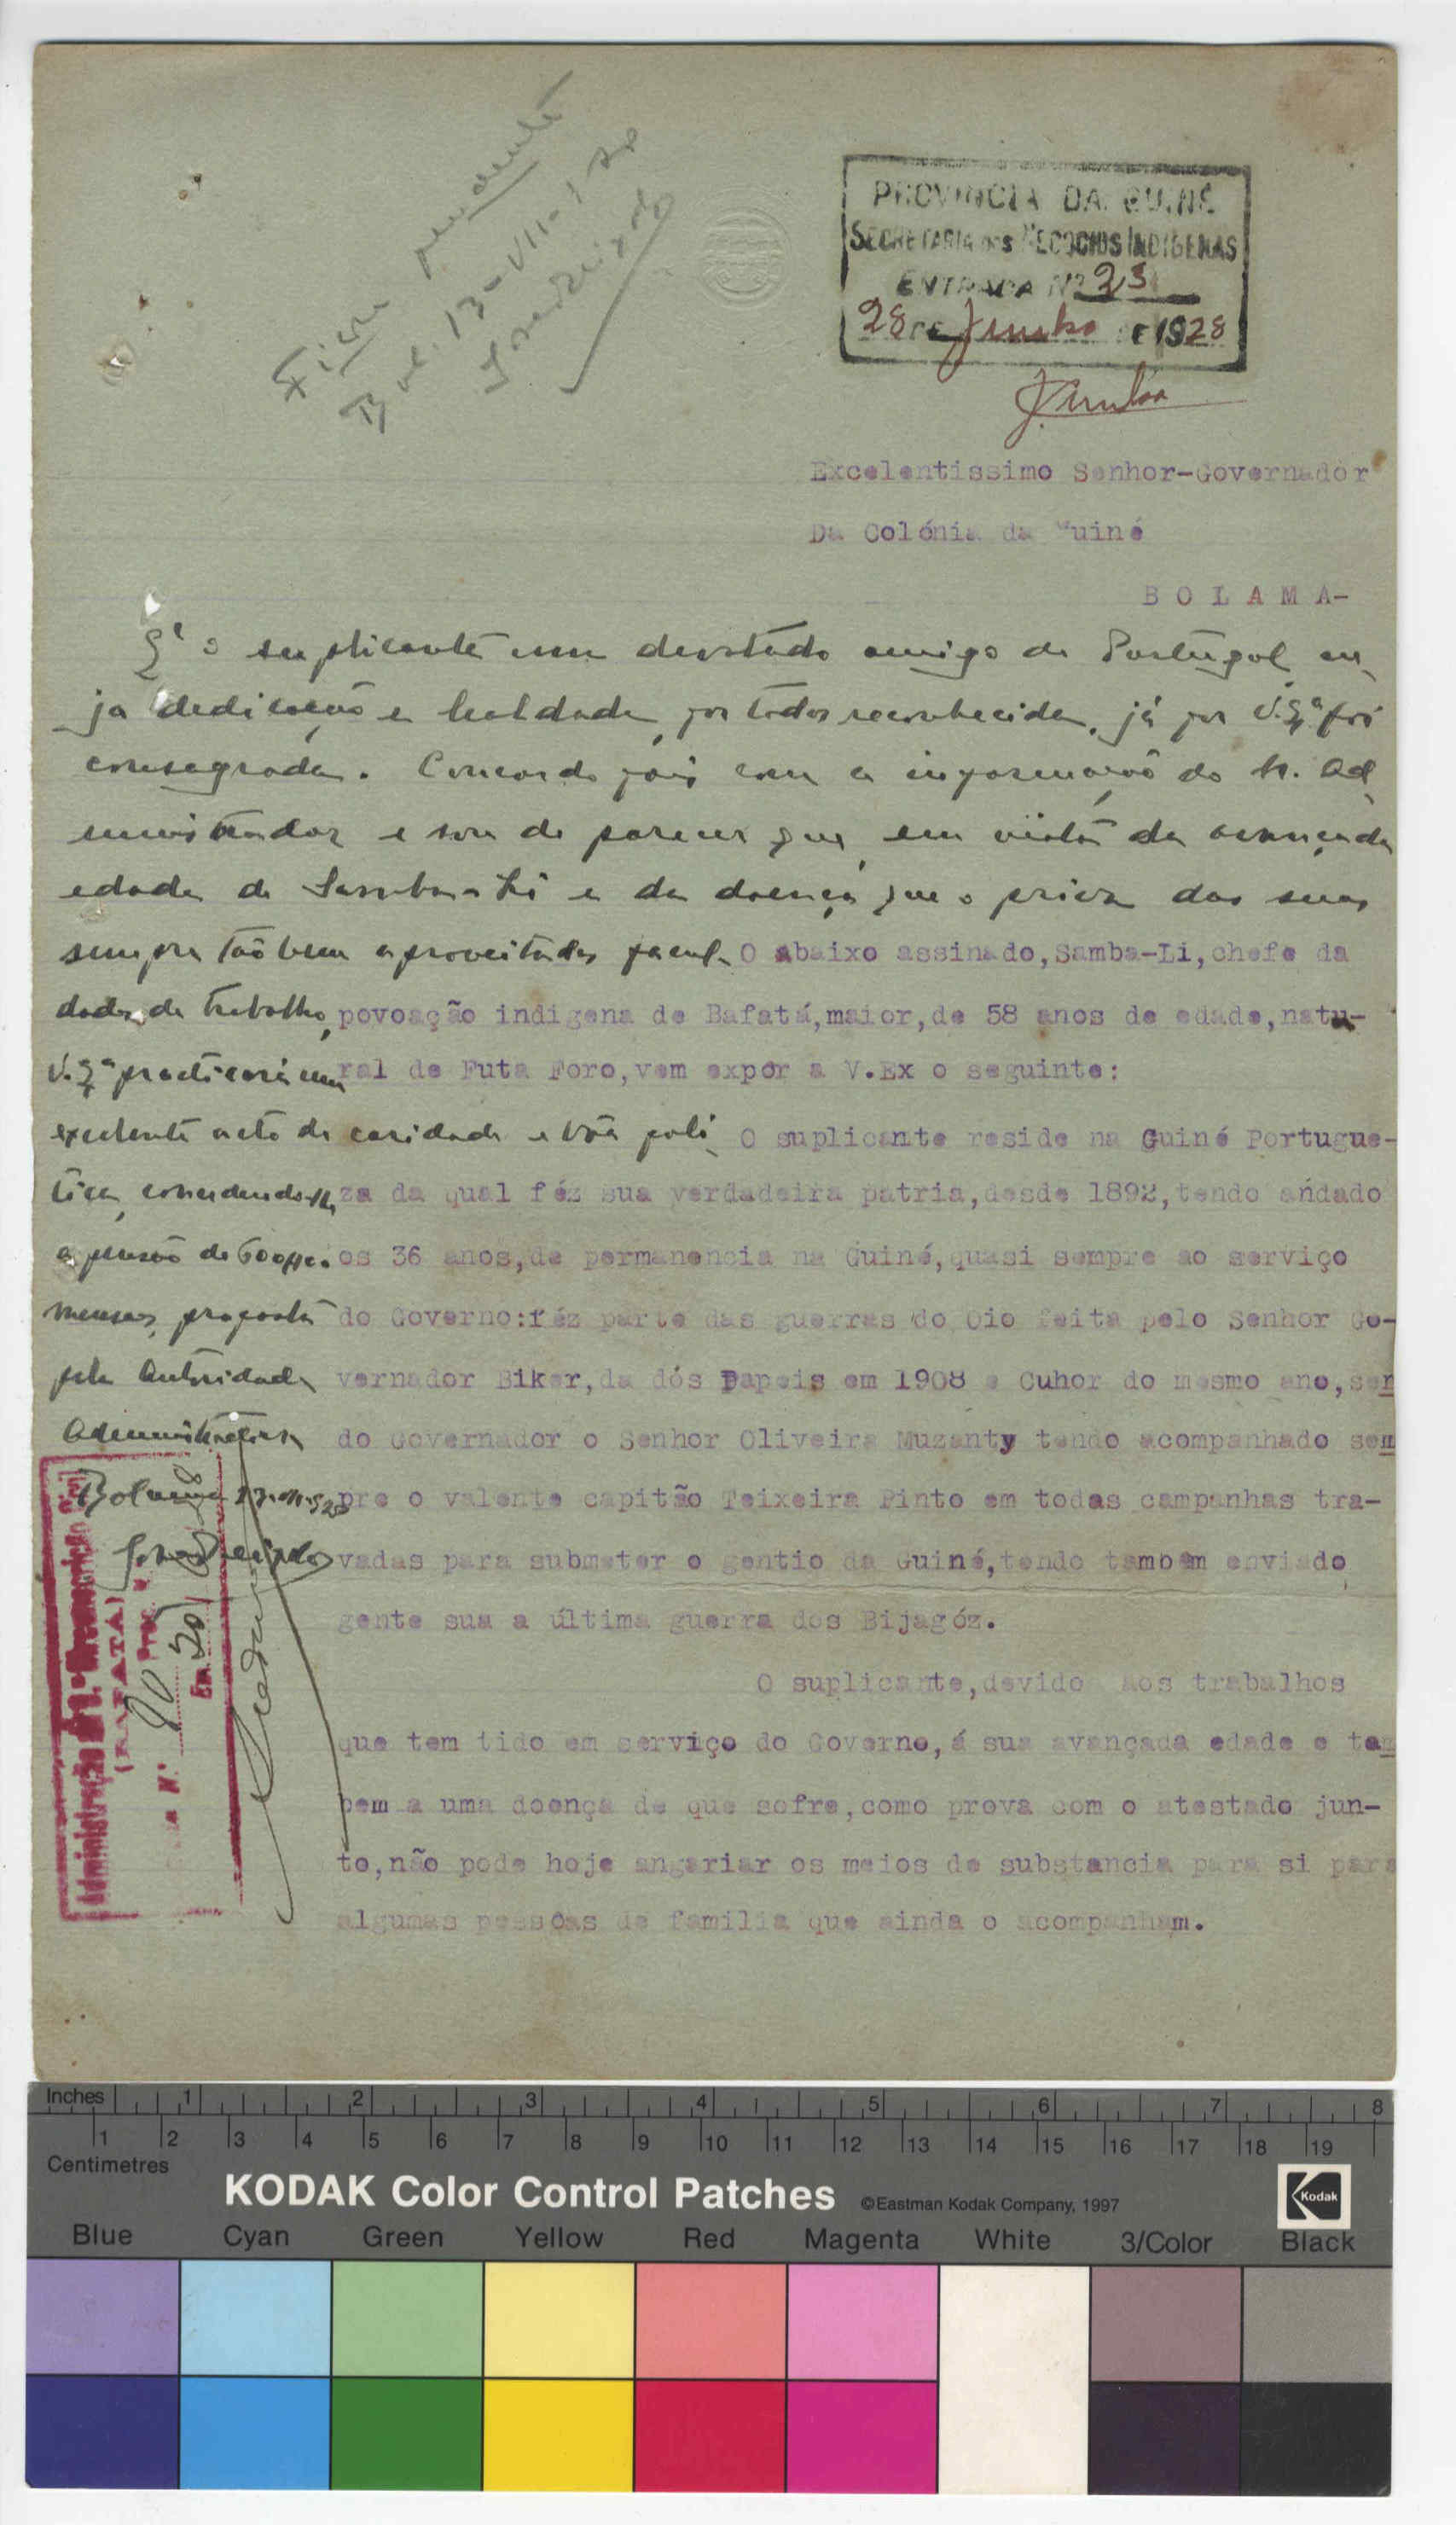 Fica pendente
PROVINCIA DA GUINÉ
SECRETARIA dos NEGOCIOS INDIGENAS
ENTRADA Nº 23
28 DE Junho DE 1928
Excelentissimo Senhor-Governador
Da Colónia da Guiné
B O L A M A-
É o suplicante um devotado amigo de Portugal cu
ja dedicação e lealdade, por todos reconhecida, já por V. Exª foi
consagrada. Concordo pois com a informação do Sr. Ad
ministrador e sou de parecer que, em vista da avançada
edade de Samba-Li e da doença que o priva das suas
sempre tão bem aproveitadas facul-
dades de trabalho,
V. Exª praticará um
excelente acto de caridade e bôa poli
tica, concedendo-lhe
a pensão de 600$00
mensaes, proposta
pela Autoridade
Administrativa
Bolama
O abaixo assinado,Samba-Li,chefe da
povoação indigena de Bafatá,maior,de 58 anos de edade,natu-
ral de Futa Foro,vem expôr a V.Ex o seguinte:
O suplicante reside na Guiné Portugue-
za da qual féz sua verdadeira patria,desde 1892,tendo andado
os 36 anos,de permanencia na Guiné,quasi sempre ao serviço
do Governo:féz parte das guerras do Oio feita pelo Senhor Go-
vernador Biker,da dós Papeis em 1908 e Cuhor do mesmo ano,sen
do Governador o Senhor Oliveira Muzanty tendo acompanhado sem
pre o valente capitão Teixeira Pinto em todas campanhas tra-
vadas para submeter o gentio da Guiné,tendo tambem enviado
gente sua a última guerra dos Bijagóz.
O suplicante,devido aos trabalhos
que tem tido em serviço do Governo,á sua avançada edade e tam
bem a uma doença de que sofre,como prova com o atestado jun-
to,não pode hoje angariar os meios de substancia para si para
algumas pessôas de familia que ainda o acompanham.
Administração da Circunscrição Civil
(BAFATÁ)
Proc.
Nº 90
Em 20
Inches 1 2 3 4 5 6 7 8
1 2 3 4 5 6 7 8 9 10 11 12 13 14 15 16 17 18 19
Centimetres
KODAK Color Control Patches ©Eastman Kodak Company, 1997 Kodak
Blue Cyan Green Yellow Red Magenta White 3/Color Black